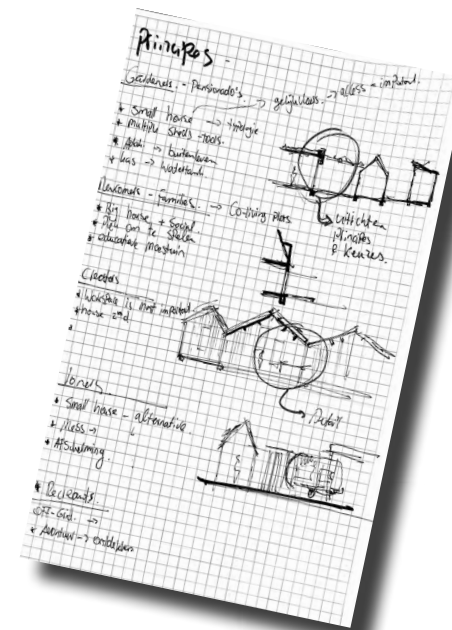 Principes -
Gardeners. - Pensionado's → gelijkvloers. → access = important.
* Small house →
* Multiple sheds - tools.
* → buitenleven
* kas →
→ uitlichten
Principes
& keuzes.
Newcomers - Families. → Co-living plots
* Big house + Social
* Plek om te spelen
* educatieve moestuin
Creators
* Workspace is most important.
* house 2nd
*
→ Detail
Loners.
* Small house - alternative.
* Mess →
* Afscherming
* Recreants.
Off-Grid. →
* Avontuur → ontdekken